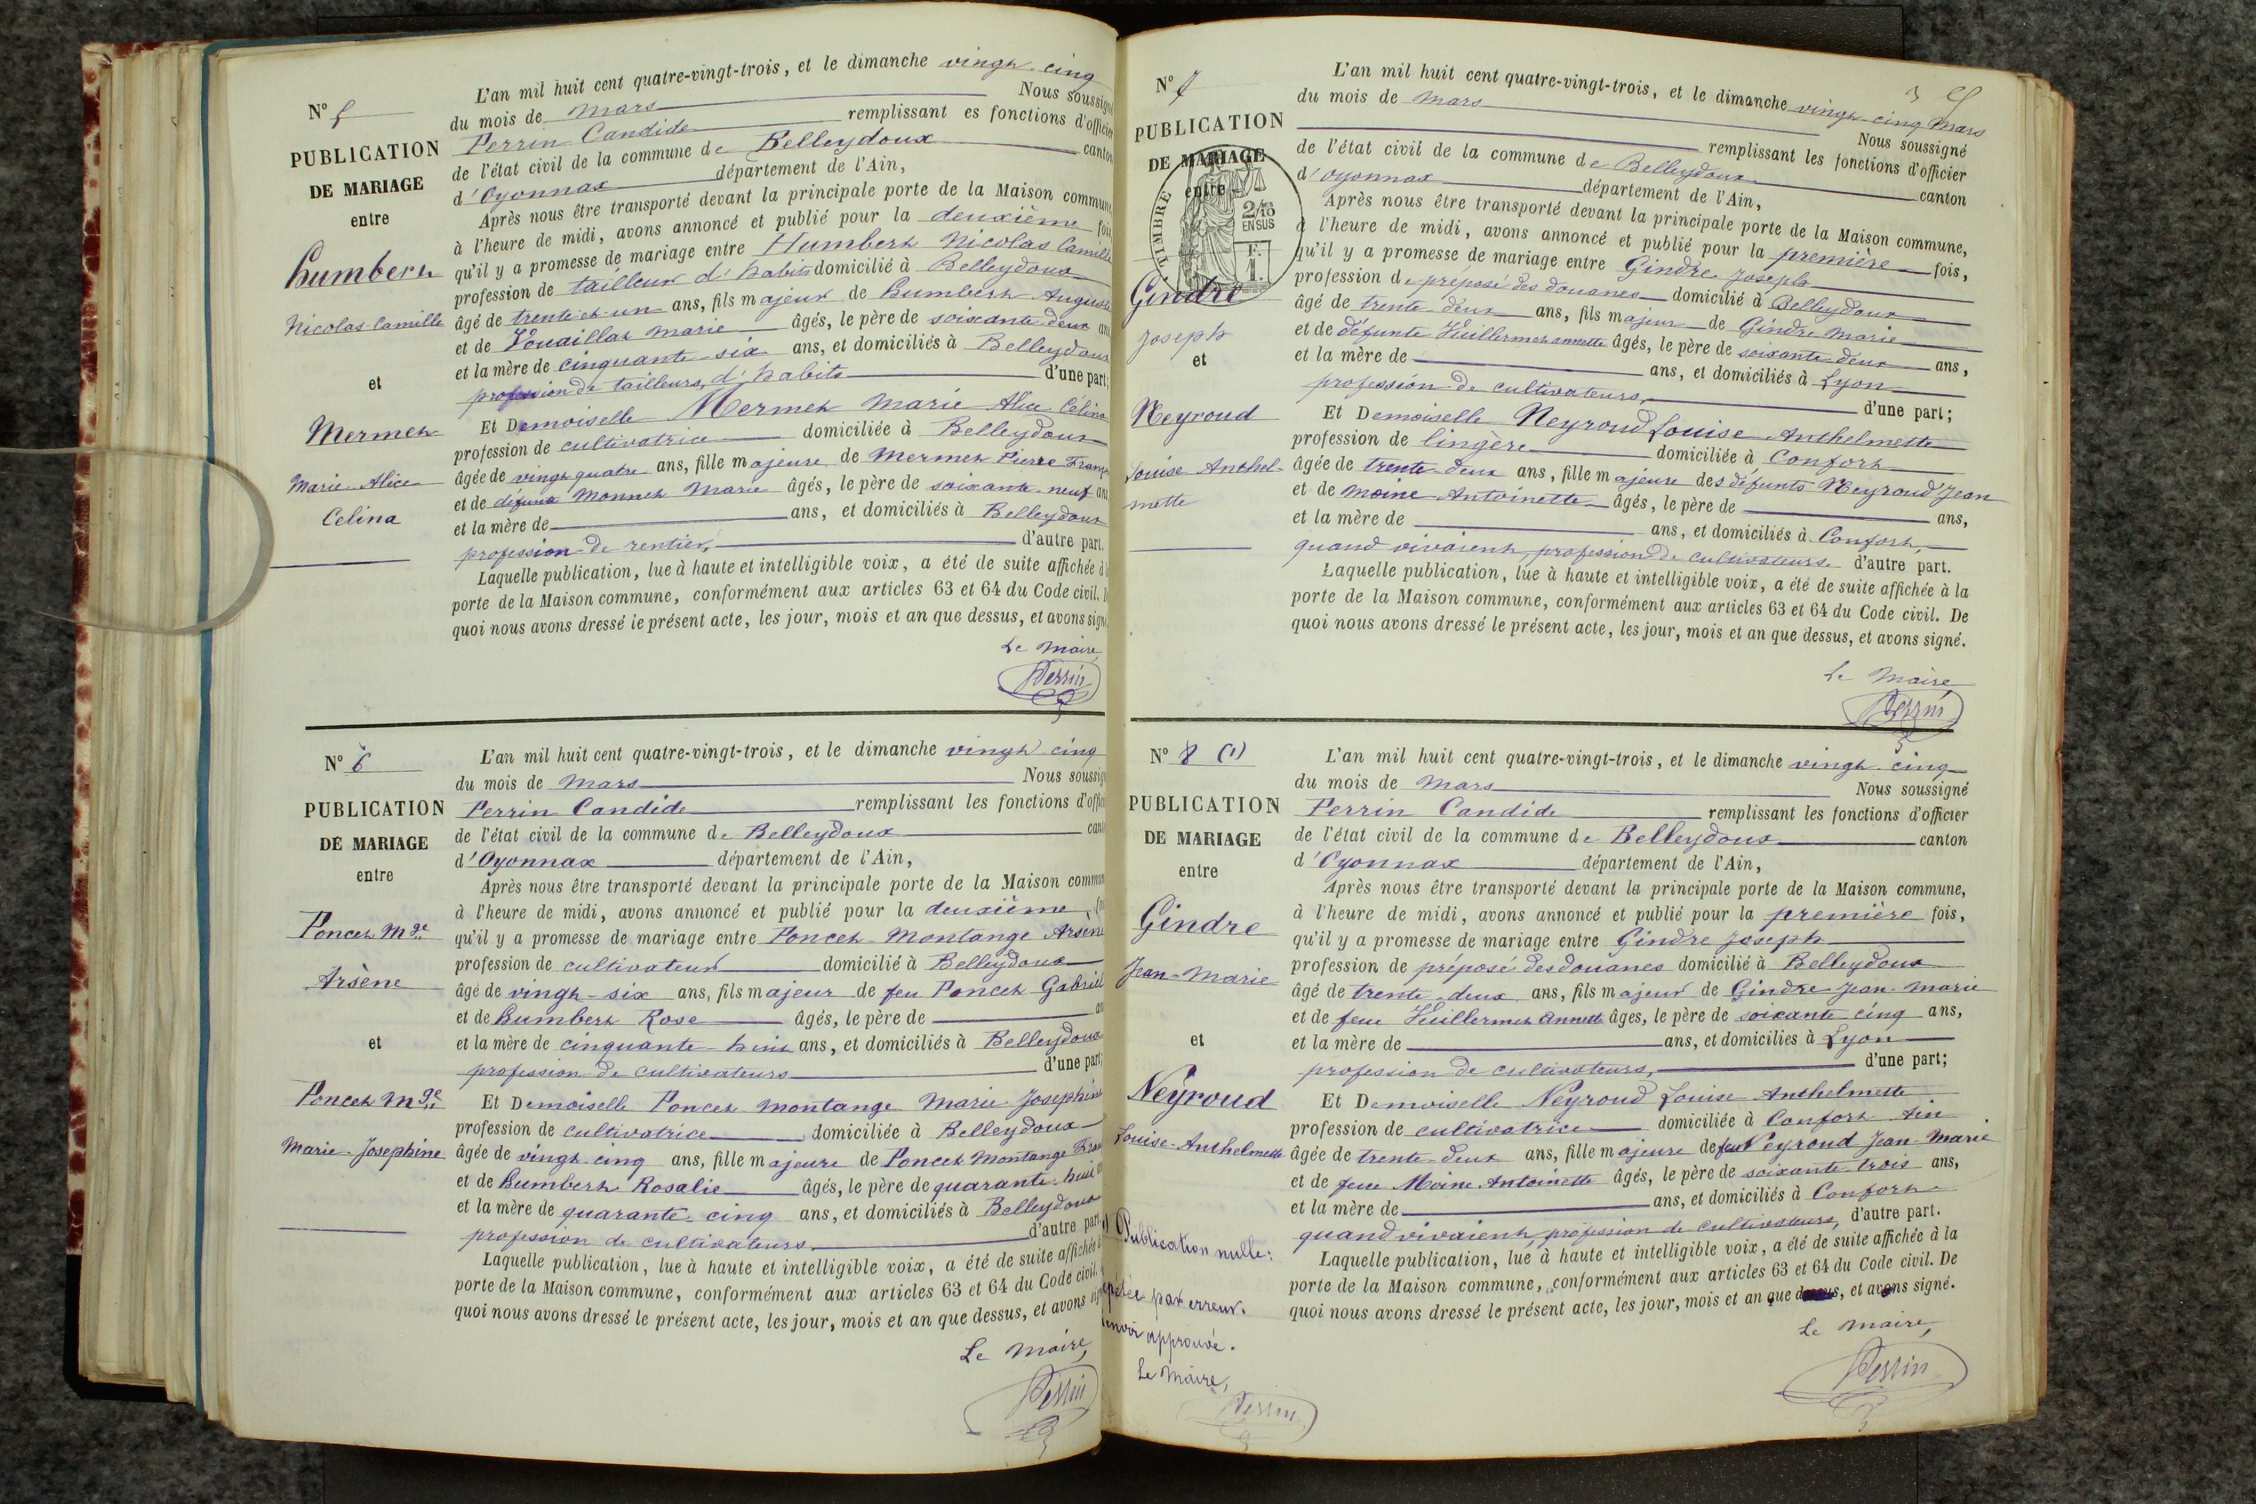 N° 5
PUBLICATION
DE MARIAGE
entre
Humbert
Nicolas Camille
et
Mermet
Marie Alice
Celina
L'an mil huit cent quatre-vingt-trois, et le dimanche vingt cinq
du mois de mars Nous soussigné
Perrin Candide remplissant es fonctions d'officier
de l'état civil de la commune de Belleydoux canton
d'Oyonnax département de l'Ain,
Après nous être transporté devant la principale porte de la Maison commune,
à l'heure de midi, avons annoncé et publié pour la deuxième fois
qu'il y a promesse de mariage entre Humbert Nicolas Camille
profession de tailleur d'habits domicilié à Belleydoux
âgé de trente et un ans, fils majeur de Humbert Auguste
et de Vouaillat Marie âgés, le père de soixante deux ans
et la mère de cinquante-six ans, et domiciliés à Belleydoux
profession de tailleurs d'habits d'une part;
Et Demoiselle Mermet Marie Alice Célina
profession de cultivatrice domiciliée à Belleydoux
âgée de vingt quatre ans, fille majeure de Mermet Pierre Franç
et de défunte Monnet Marie âgés, le père de soixante-neuf ans
et la mère de ans, et domiciliés à Belleydoux
profession de rentier, d'autre part.
Laquelle publication, lue à haute et intelligible voix, a été de suite affichée à
porte de la Maison commune, conformément aux articles 63 et 64 du Code civil. D
quoi nous avons dressé le présent acte, les jour, mois et an que dessus, et avons signé
Le Maire,
Perrin
N° 6
PUBLICATION
DE MARIAGE
entre
Poncet Mge
Arsène
et
Poncet Mge
Marie-Josephine
L'an mil huit cent quatre-vingt-trois, et le dimanche vingt cinq
du mois de mars Nous soussigné
Perrin Candide remplissant les fonctions d'officier
de l'état civil de la commune de Belleydoux canton
d'Oyonnax département de l'Ain,
Après nous être transporté devant la principale porte de la Maison commune
à l'heure de midi, avons annoncé et publié pour la deuxième fois
qu'il y a promesse de mariage entre Poncet-Montange Arsène
profession de cultivateur domicilié à Belleydoux
âgé de vingt-six ans, fils majeur de feu Poncet Gabriel
et de Humbert Rose âgés, le père de ans
et la mère de cinquante-huit ans, et domiciliés à Belleydoux
profession de cultivateurs d'une part;
Et Demoiselle Poncet Montange Marie-Josephine
profession de cultivatrice domiciliée à Belleydoux
âgée de vingt cinq ans, fille majeure de Poncet Montange Fran
et de Humbert Rosalie âgés, le père de quarante-huit
et la mère de quarante-cinq ans, et domiciliés à Belleydoux
profession de cultivateurs d'autre part
Laquelle publication, lue à haute et intelligible voix, a été de suite affichée à
porte de la Maison commune, conformément aux articles 63 et 64 du Code civil.
quoi nous avons dressé le présent acte, les jour, mois et an que dessus, et avons signé
Le Maire,
Perrin
N° 7
PUBLICATION
DE MARIAGE
entre
TIMBRE
2/10
EN SUS
F.
1.
Gindre
Joseph
et
Neyroud
Louise Anthel-
mette
L'an mil huit cent quatre-vingt-trois, et le dimanche vingt-cinq mars
du mois de mars Nous soussigné
remplissant les fonctions d'officier
de l'état civil de la commune de Belleydoux canton
d'Oyonnax département de l'Ain,
Après nous être transporté devant la principale porte de la Maison commune,
à l'heure de midi, avons annoncé et publié pour la première fois,
qu'il y a promesse de mariage entre Gindre Joseph
profession de préposé des douanes domicilié à Belleydoux
âgé de trente-deux ans, fils majeur de Gindre Marie
et de défunte Vuillermet annette âgés, le père de soixante-deux ans,
et la mère de ans, et domiciliés à Lyon
profession de cultivateurs, d'une part;
Et Demoiselle Neyroud Louise Anthelmette
profession de lingère domiciliée à Confort
âgée de trente-deux ans, fille majeure des défunts Neyroud Jean
et de Moine Antoinette âgés, le père de ans,
et la mère de ans, et domiciliés à Confort,
quand vivaient, profession de cultivateurs d'autre part.
Laquelle publication, lue à haute et intelligible voix, a été de suite affichée à la
porte de la Maison commune, conformément aux articles 63 et 64 du Code civil. De
quoi nous avons dressé le présent acte, les jour, mois et an que dessus, et avons signé.
Le Maire
Perrin
N° 8 (1)
PUBLICATION
DE MARIAGE
entre
Gindre
Jean-Marie
et
Neyroud
Louise-Anthelmette
Publication nulle:
répétée par erreur.
Renvoi approuvé.
Le Maire,
Perrin
L'an mil huit cent quatre-vingt-trois, et le dimanche vingt cinq
du mois de mars Nous soussigné
Perrin Candide remplissant les fonctions d'officier
de l'état civil de la commune de Belleydoux canton
d'Oyonnax département de l'Ain,
Après nous être transporté devant la principale porte de la Maison commune,
à l'heure de midi, avons annoncé et publié pour la première fois,
qu'il y a promesse de mariage entre Gindre Joseph
profession de préposé des douanes domicilié à Belleydoux
âgé de trente-deux ans, fils majeur de Gindre Jean-Marie
et de feue Vuillermet Annette âgés, le père de soixante cinq ans,
et la mère de ans, et domiciliés à Lyon
profession de cultivateurs, d'une part;
Et Demoiselle Neyroud Louise Anthelmette
profession de cultivatrice domiciliée à Confort Ain
âgée de trente-deux ans, fille majeure de feu Neyroud Jean Marie
et de feue Moine Antoinette âgés, le père de soixante-trois ans,
et la mère de ans, et domiciliés à Confort
quand vivaient, profession de cultivateurs, d'autre part.
Laquelle publication, lue à haute et intelligible voix, a été de suite affichée à la
porte de la Maison commune, conformément aux articles 63 et 64 du Code civil. De
quoi nous avons dressé le présent acte, les jour, mois et an que dessus, et avons signé.
Le Maire,
Perrin